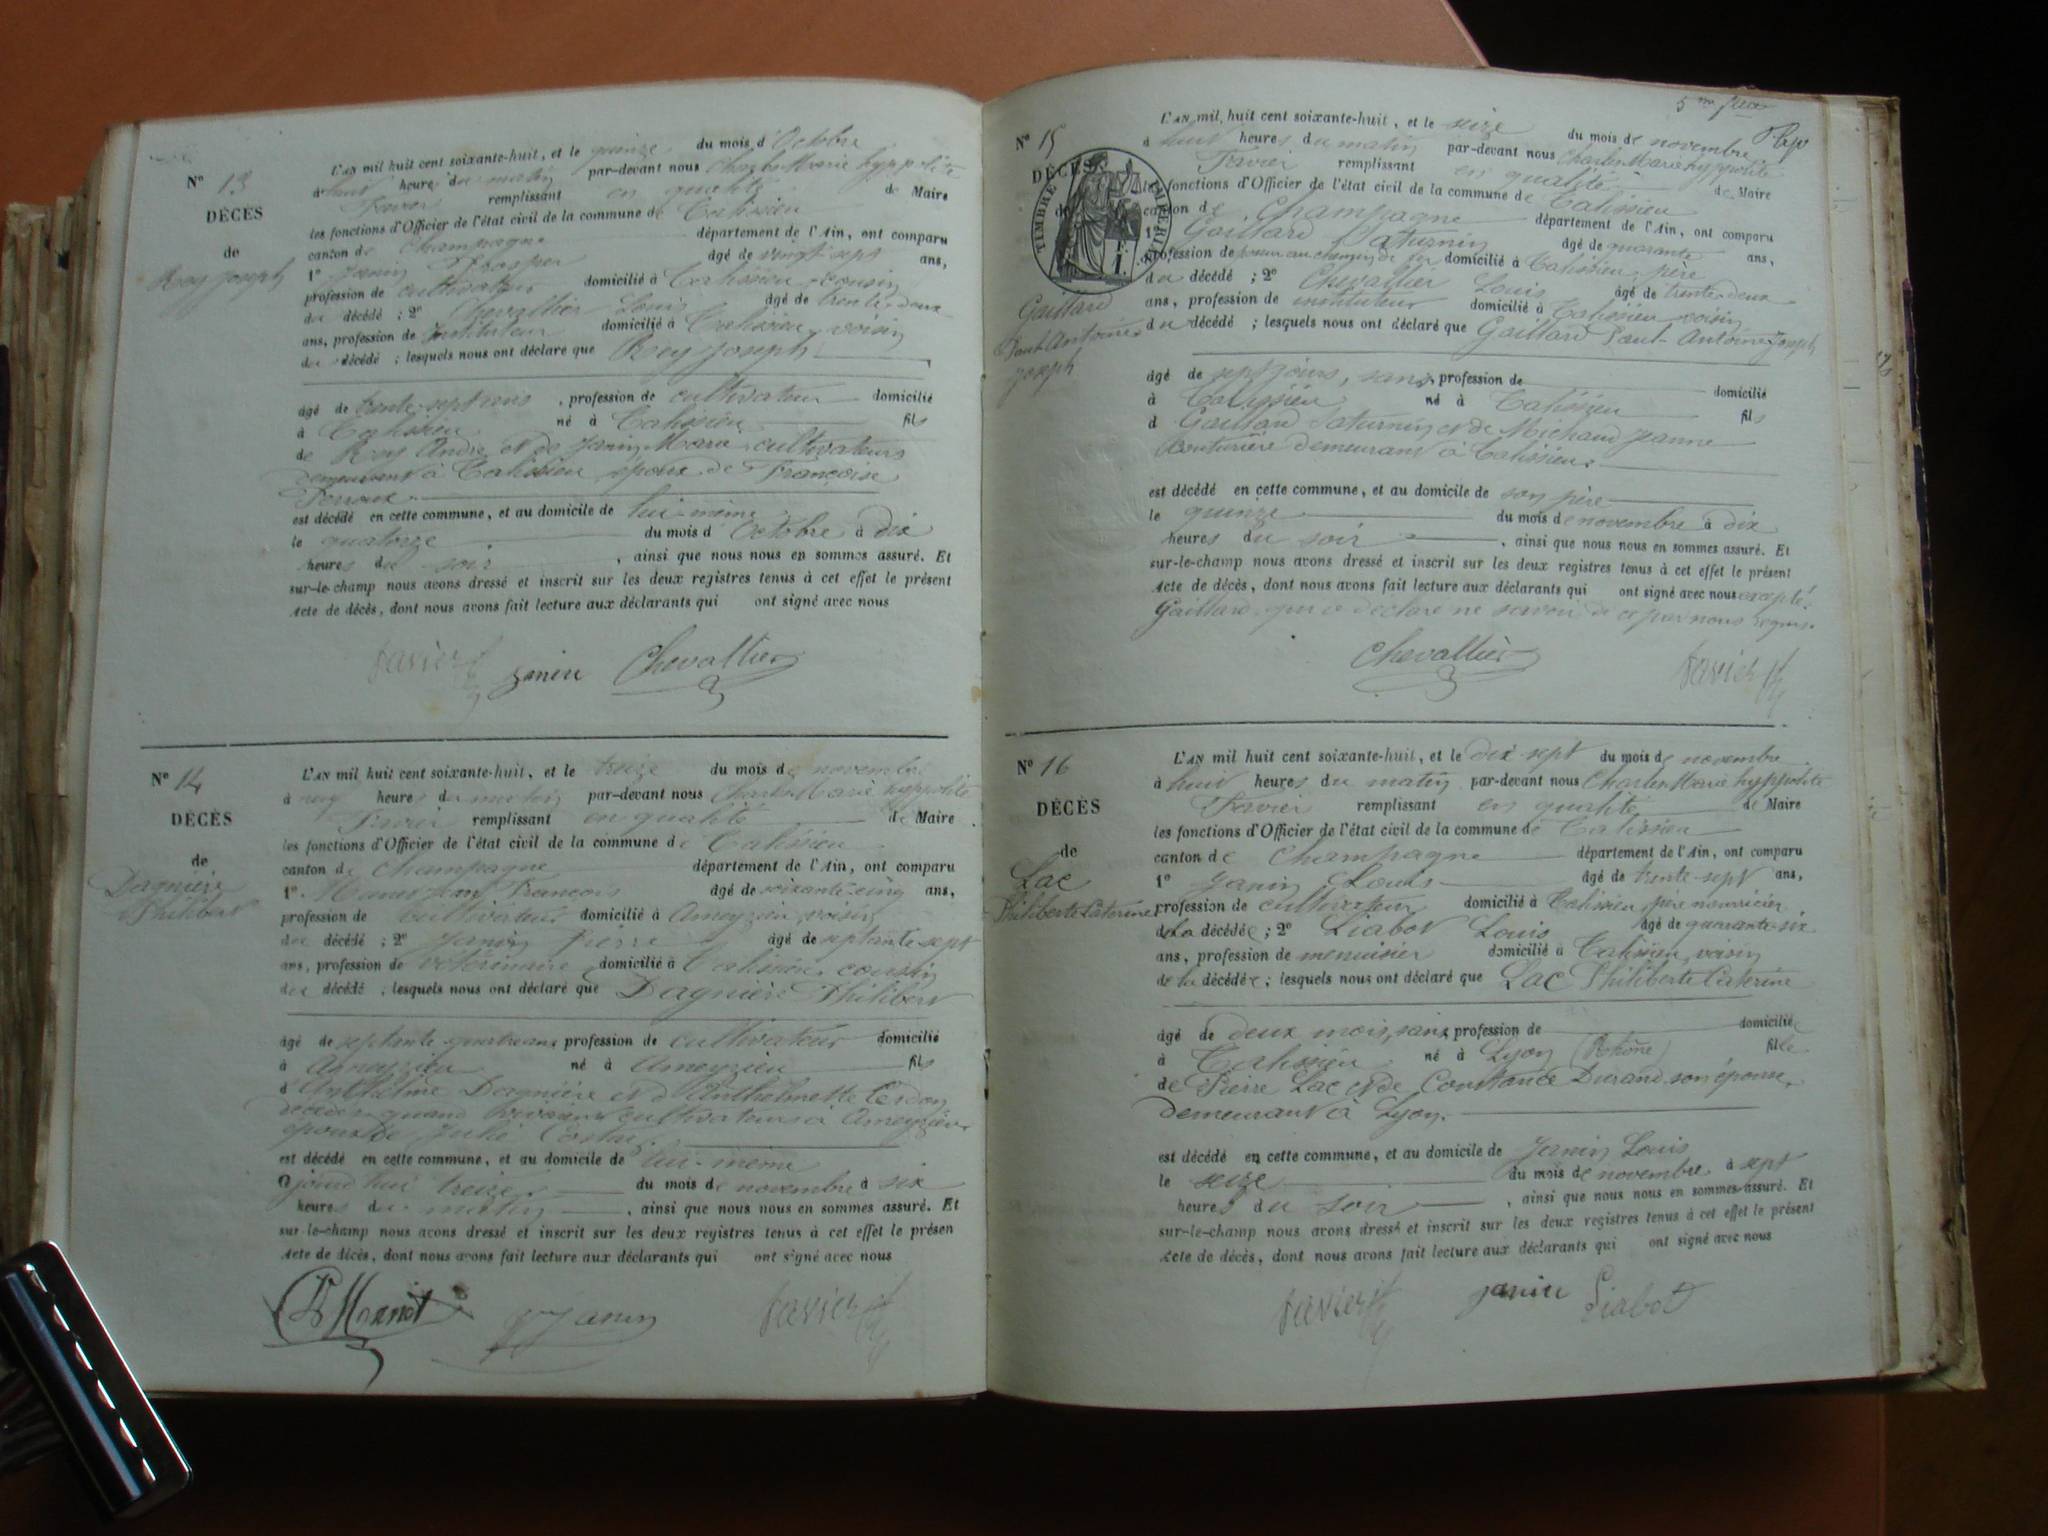 N° 13
DÉCÈS
de
Rey Joseph
L'AN mil huit cent soixante-huit, et le quinze du mois d'Octobre
à huit heures du matin par-devant nous Charles Marie hyppolite
Favier remplissant en qualité de Maire
les fonctions d'Officier de l'état civil de la commune de Talissieu
canton de Champagne département de l'Ain, ont comparu
1° Janin Prosper âgé de vingt sept ans,
profession de cultivateur domicilié à Talissieu cousin
du décédé ; 2° Chevallier Louis âgé de trente-deux
ans, profession de instituteur domicilié à Talissieu voisin
du décédé ; lesquels nous ont déclaré que Rey Joseph
âgé de trente-sept ans, profession de cultivateur domicilié
à Talissieu né à Talissieu fils
de Rey André et de Janin Marie cultivateurs
demeurant à Talissieu époux de Françoise
est décédé en cette commune, et au domicile de lui-même
le quatorze du mois d'Octobre à dix
heures du soir, ainsi que nous nous en sommes assuré. Et
sur-le-champ nous avons dressé et inscrit sur les deux registres tenus à cet effet le présent
Acte de décès, dont nous avons fait lecture aux déclarants qui ont signé avec nous
Favier Janin Chevallier
N° 14
DÉCÈS
de
Dagnière
Philibert
L'AN mil huit cent soixante-huit, et le treize du mois de novembre
à neuf heures du matin par-devant nous Charles Marie hyppolite
Favier remplissant en qualité de Maire
les fonctions d'Officier de l'état civil de la commune de Talissieu
canton de Champagne département de l'Ain, ont comparu
1° Jean François âgé de soixante-cinq ans,
profession de cultivateur domicilié à Ameyzieu voisin
du décédé ; 2° Janin Pierre âgé de septante-sept
ans, profession de vétérinaire domicilié à Talissieu cousin
du décédé ; lesquels nous ont déclaré que Dagnière Philibert
âgé de septante-quatre ans profession de cultivateur domicilié
à Ameyzieu né à Ameyzieu fils
d'Anthelme Dagnière et d'Anthelmette
quand cultivateurs à Ameyzieu
époux de Julie
est décédé en cette commune, et au domicile de lui-même
ajourd'hui treize du mois de novembre à six
heures du matin, ainsi que nous nous en sommes assuré. Et
sur-le-champ nous avons dressé et inscrit sur les deux registres tenus à cet effet le présen
Acte de décès, dont nous avons fait lecture aux déclarants qui ont signé avec nous
Janin Favier
5me
N° 15
DÉCÈS
de
TIMBRE IMPÉRIAL
Gaillard
Paul-Antoine
Joseph
L'AN mil huit cent soixante-huit, et le seize du mois de novembre
à huit heures du matin par-devant nous Charles Marie hyppolite
Favier remplissant en qualité de Maire
les fonctions d'Officier de l'état civil de la commune de Talissieu
canton de Champagne département de l'Ain, ont comparu
1° Gaillard Saturnin âgé de quarante ans,
profession de au chemin de fer domicilié à Talissieu, père
du décédé ; 2° Chevallier Louis âgé de trente-deux
ans, profession de instituteur domicilié à Talissieu voisin
du décédé ; lesquels nous ont déclaré que Gaillard Paul-Antoine Joseph
âgé de sept jours, sans profession de domicilié
à Talissieu né à Talissieu fils
d Gaillard Saturnin et de Michaud Jeanne
Couturière demeurant à Talissieu.
est décédé en cette commune, et au domicile de son père
le quinze du mois de novembre à dix
heures du soir, ainsi que nous nous en sommes assuré. Et
sur-le-champ nous avons dressé et inscrit sur les deux registres tenus à cet effet le présent
Acte de décès, dont nous avons fait lecture aux déclarants qui ont signé avec nous excepté
Gaillard qui a déclaré ne savoir de ce par nous requis.
Chevallier Favier
N° 16
DÉCÈS
de
Lac
Philiberte Caterine
L'AN mil huit cent soixante-huit, et le dix-sept du mois de novembre
à huit heures du matin par-devant nous Charles Marie hyppolite
Favier remplissant en qualité de Maire
les fonctions d'Officier de l'état civil de la commune de Talissieu
canton de Champagne département de l'Ain, ont comparu
1° Janin Louis âgé de trente-sept ans,
profession de cultivateur domicilié à Talissieu père nourricier
de la décédée ; 2° Liabot Louis âgé de quarante-six
ans, profession de menuisier domicilié à Talissieu voisin
de la décédée ; lesquels nous ont déclaré que Lac Philiberte Caterine
âgé de deux mois, sans profession de domiciliée
à Talissieu né à Lyon (Rhône) fille
de Pierre Lac et de Constance Durand son épouse,
demeurant à Lyon.
est décédé en cette commune, et au domicile de Janin Louis
le seize du mois de novembre à sept
heures du soir, ainsi que nous nous en sommes assuré. Et
sur-le-champ nous avons dressé et inscrit sur les deux registres tenus à cet effet le présent
Acte de décès, dont nous avons fait lecture aux déclarants qui ont signé avec nous
Favier Janin Liabot